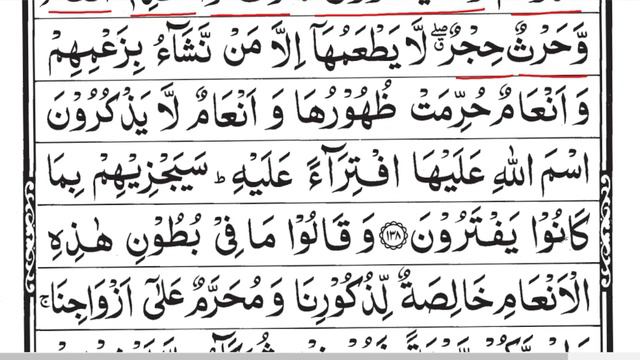 وَّحَرْثٌ حِجْرٌ ۖ لَّا يَطْعَمُهَاۤ اِلَّا مَنْ نَّشَآءُ بِزَعْمِهِمْ
وَ اَنْعَامٌ حُرِّمَتْ ظُهُوْرُهَا وَ اَنْعَامٌ لَّا يَذْكُرُوْنَ
اسْمَ اللّٰهِ عَلَيْهَا افْتِرَآءً عَلَيْهِ ؕ سَيَجْزِيْهِمْ بِمَا
كَانُوْا يَفْتَرُوْنَ ﴿۱۳۸﴾ وَ قَالُوْا مَا فِيْ بُطُوْنِ هٰذِهِ
الْاَنْعَامِ خَالِصَةٌ لِّذُكُوْرِنَا وَ مُحَرَّمٌ عَلٰۤى اَزْوَاجِنَا ۚ